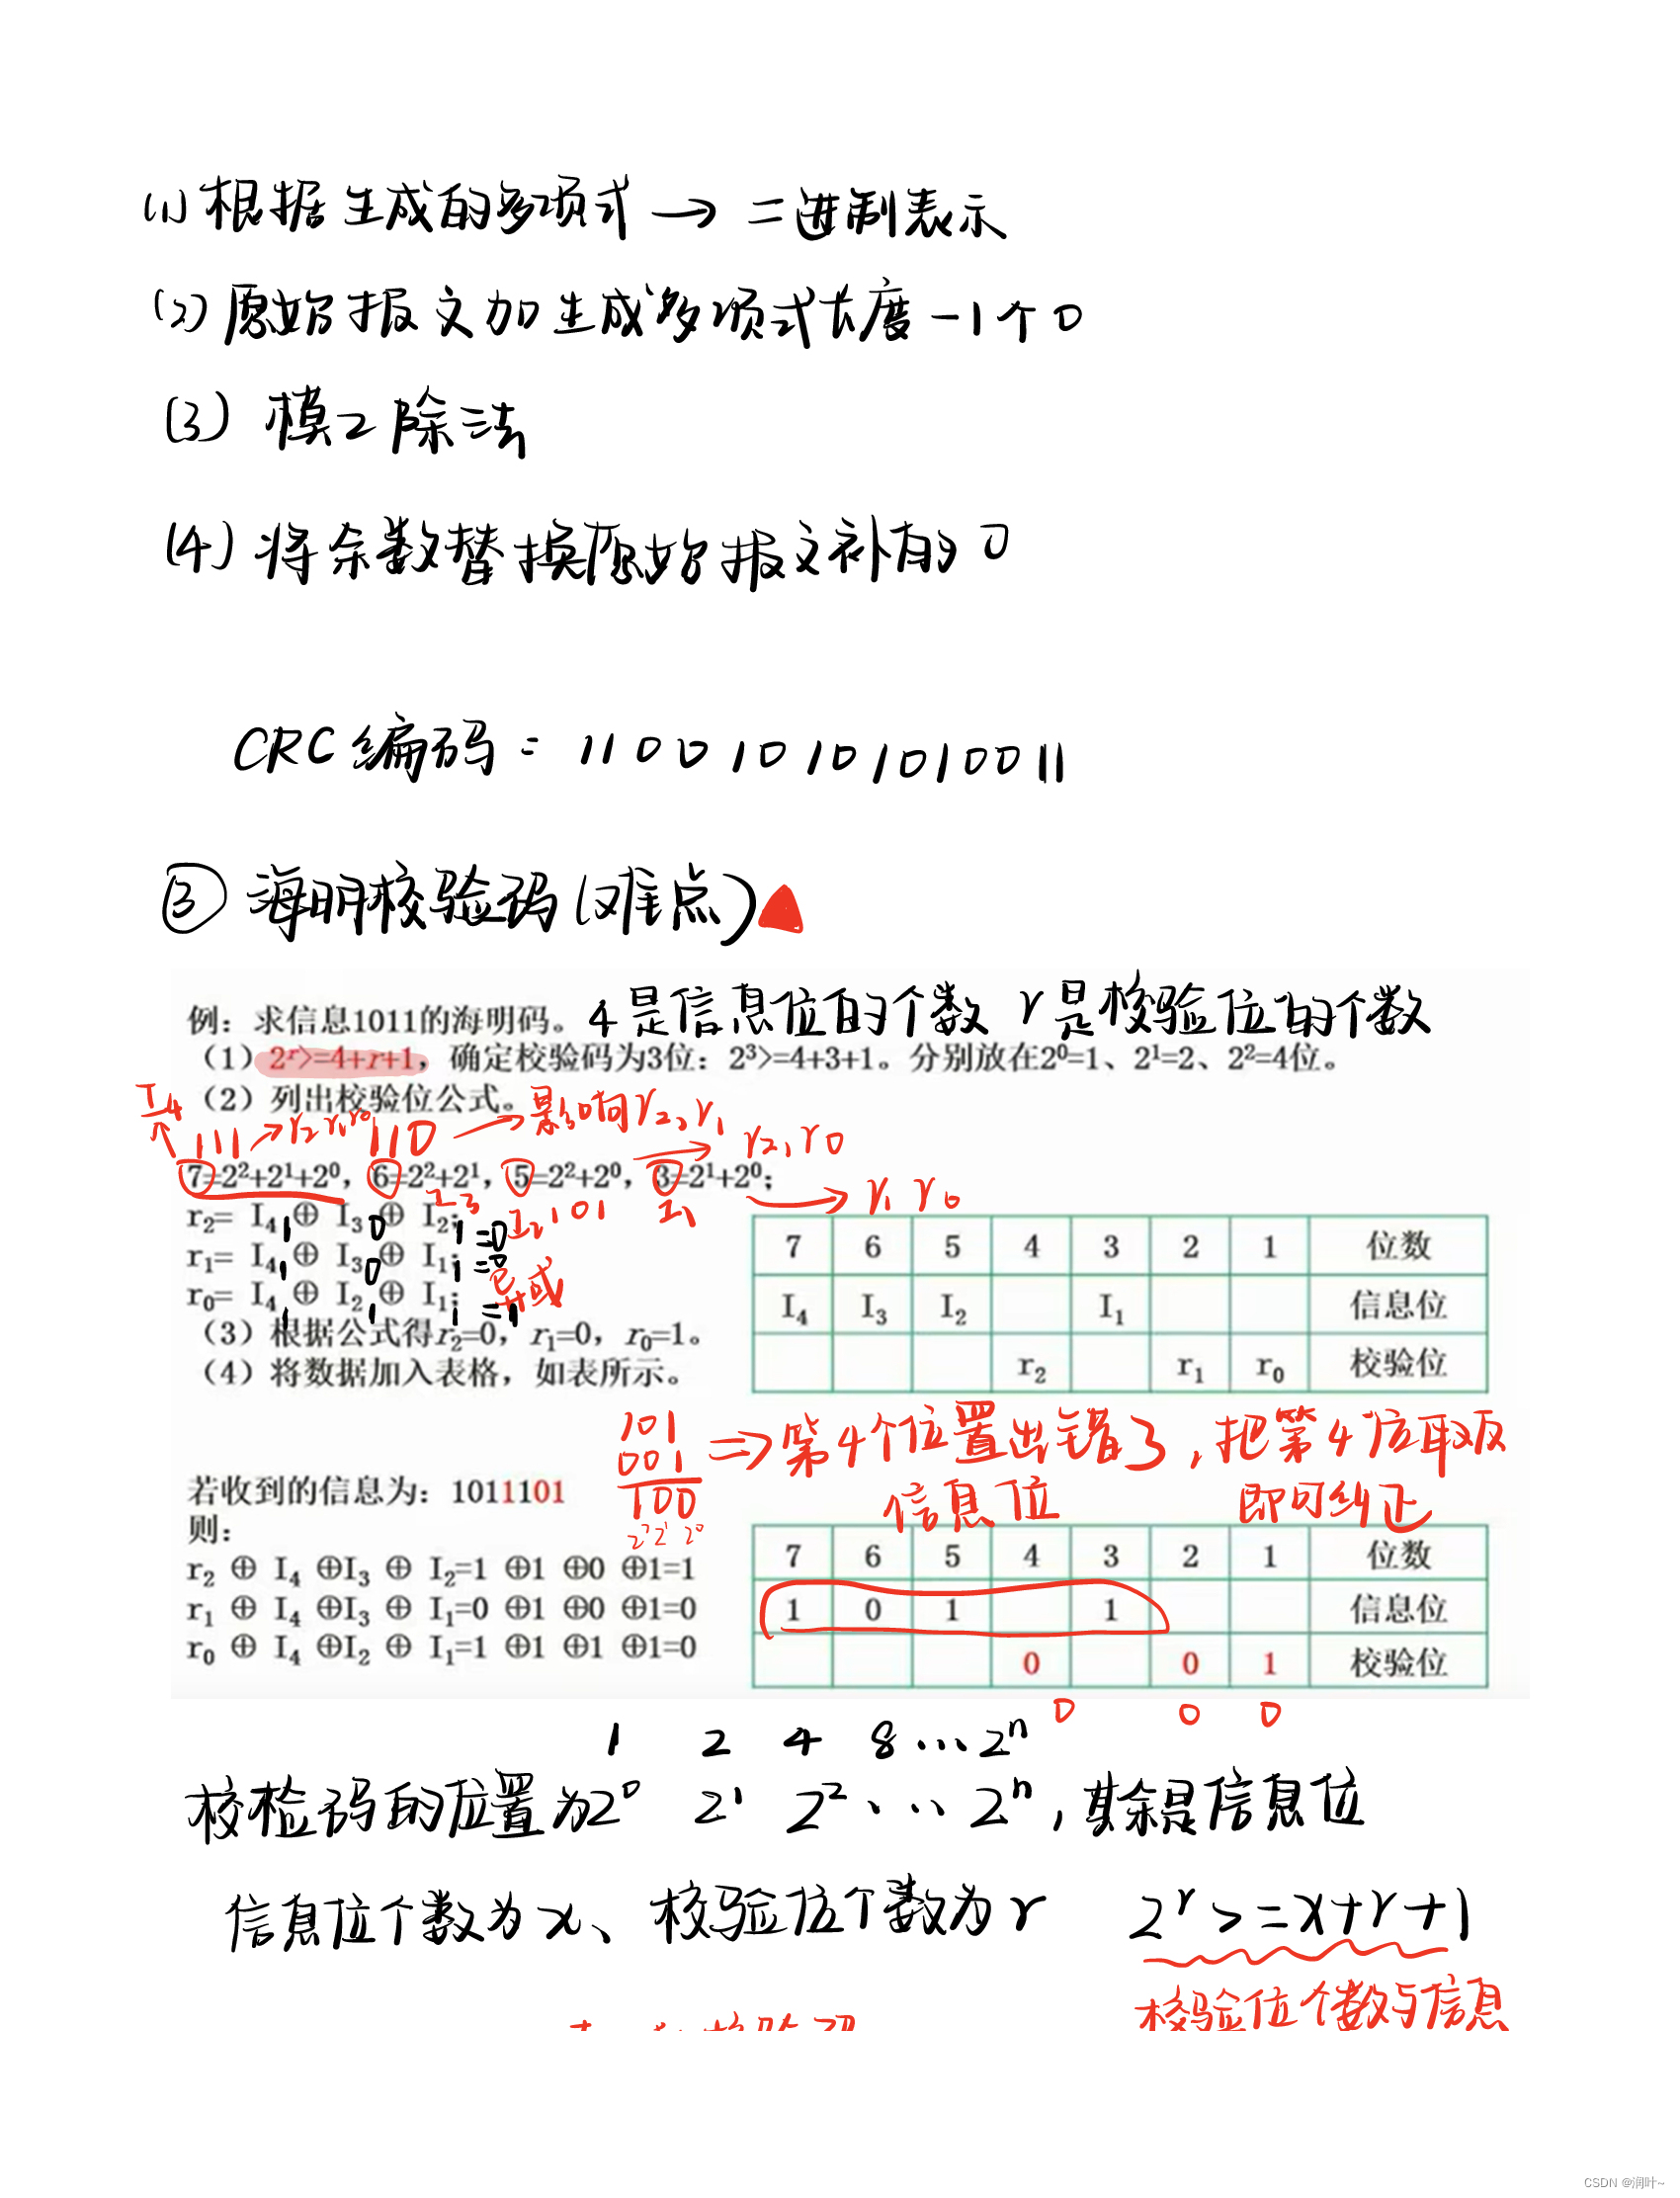 (1)根据生成的多项式→二进制表示
(2)原始报文加生成多项式长度-1个0
(3)模2除法
(4)将余数替换原始报文补的0
CRC编码=110010101010011
③海明校验码(难点)
例：求信息1011的海明码。4是信息位的个数 r是校验位的个数
（1）2^r>=4+r+1，确定校验码为3位：2³>=4+3+1。分别放在2⁰=1、2¹=2、2²=4位。
（2）列出校验位公式。
I4 111→r2r1r0 110→影响r2,r1 r2,r0
7=2²+2¹+2⁰，6=2²+2¹，5=2²+2⁰，3=2¹+2⁰；→r1 r0
I3 I2 101 I1
r₂= I₄ ⊕ I₃ ⊕ I₂；
1 0 1 =0
r₁= I₄ ⊕ I₃ ⊕ I₁；
1 0 1 =0
异或
r₀= I₄ ⊕ I₂ ⊕ I₁；
1 1 1 =1
（3）根据公式得r₂=0，r₁=0，r₀=1。
（4）将数据加入表格，如表所示。
7 6 5 4 3 2 1 位数
I₄ I₃ I₂ I₁ 信息位
r₂ r₁ r₀ 校验位
101
001
100
2² 2¹ 2⁰
⇒第4个位置出错了,把第4位取反
信息位 即可纠正
若收到的信息为：1011101
则：
r₂ ⊕ I₄ ⊕I₃ ⊕ I₂=1 ⊕1 ⊕0 ⊕1=1
r₁ ⊕ I₄ ⊕I₃ ⊕ I₁=0 ⊕1 ⊕0 ⊕1=0
r₀ ⊕ I₄ ⊕I₂ ⊕ I₁=1 ⊕1 ⊕1 ⊕1=0
7 6 5 4 3 2 1 位数
1 0 1 1 信息位
0 0 1 校验位
0 0 0
1 2 4 8…2ⁿ
校检码的位置为2⁰ 2¹ 2²…2ⁿ,其余是信息位
信息位个数为x、校验位个数为r 2^r>=x+r+1
校验位个数与信息
CSDN @润叶~